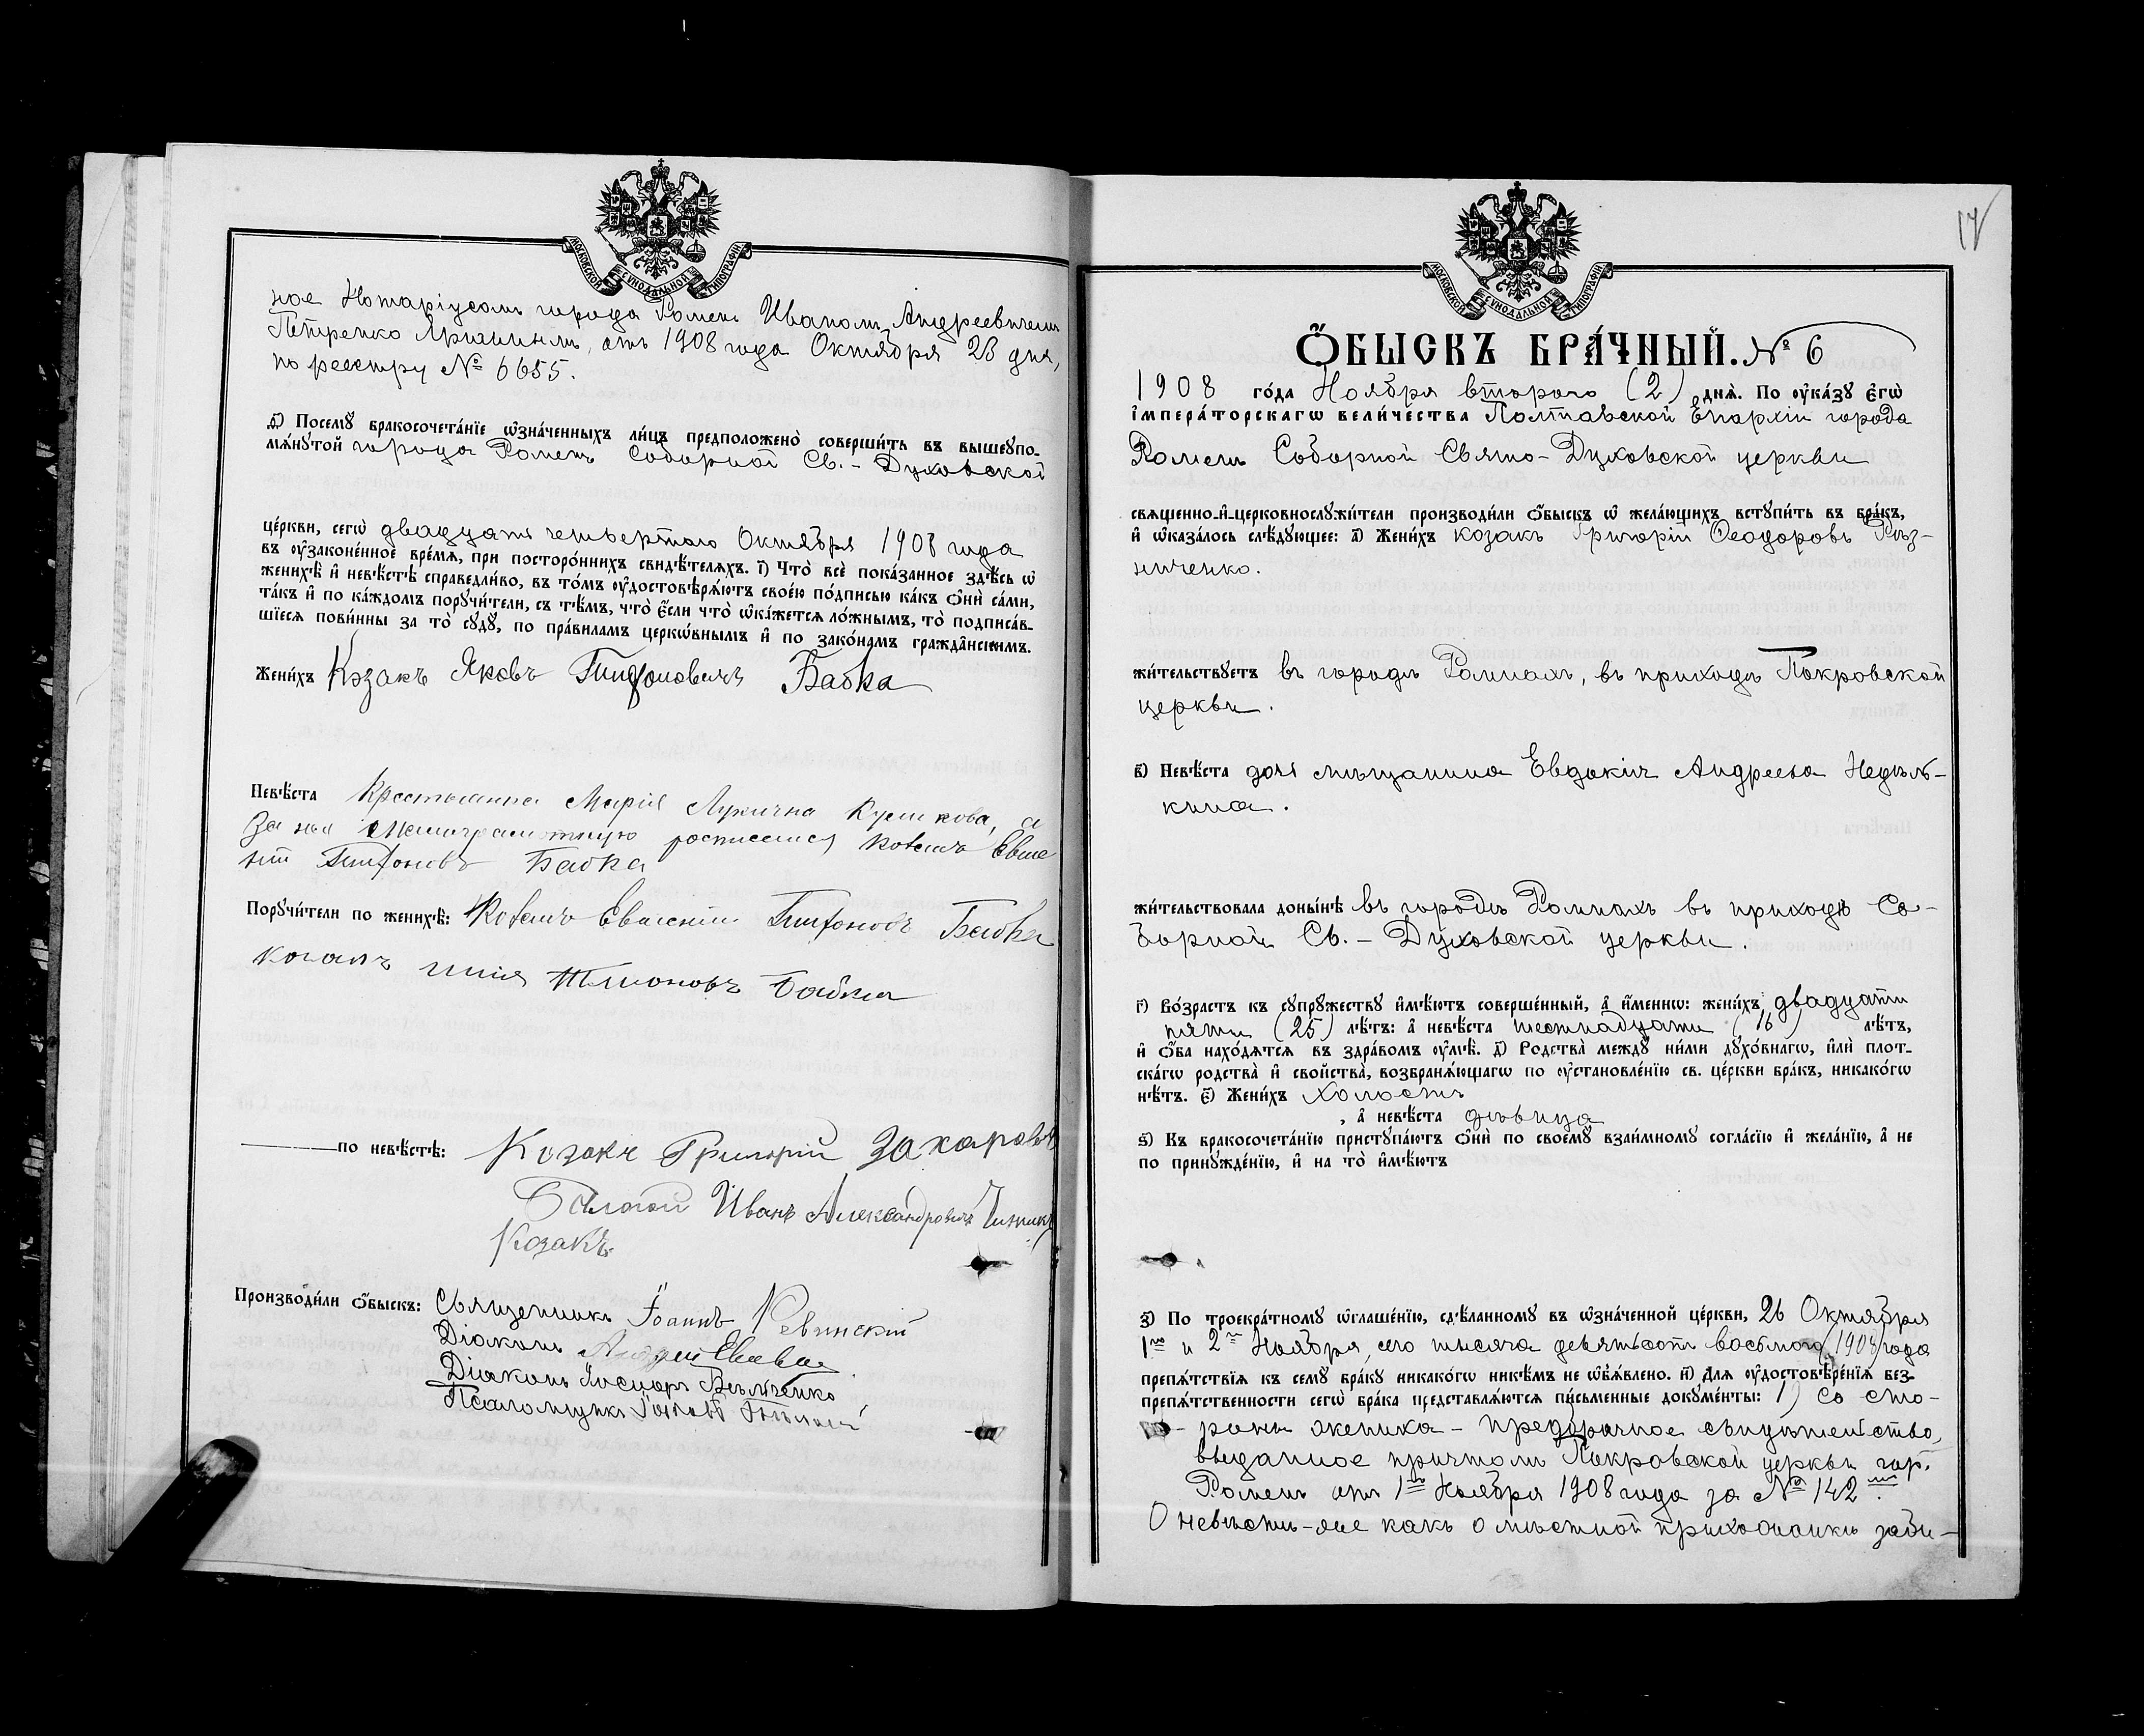 МОСКОВСКОЙ СѴНОДАЛЬНОЙ ТИПОГРАФІИ
ное Нотаріусомъ города Роменъ Иваномъ Андреевичемъ
Петренко, отъ 1908 года Октября 23 дня,
по реестру № 6655.
д҃і) Посемꙋ бракосочета́нїе ѡ҆зна́ченныхъ ли́цъ предположено̀ соверши́ть въ вышеꙋпо-
мѧ́нꙋтой города Роменъ Соборной Св.-Духовской
це́ркви, сегѡ̀ двадцать четвертого Октября 1908 года
въ ᲂу҆законе́нное вре́мѧ, при посторо́ннихъ свидѣ́телѧхъ. і҃) Что̀ всѐ пока́занное здѣ́сь ѡ҆
женихѣ̀ и҆ невѣ́стѣ справедли́во, въ то́мъ ᲂу҆достовѣрѧ́ютъ свое́ю по́дписью ка́къ ѻ҆нѝ са́ми,
та́къ и҆ по ка́ждомъ порꙋчи́тели, съ тѣ́мъ, что̀ є҆́сли что̀ ѡ҆ка́жетсѧ ло́жнымъ, то̀ подписа́в-
шїесѧ пови́нны за то̀ сꙋдꙋ̀, по пра́виламъ церкѡ́внымъ и҆ по зако́намъ гражда̑нскимъ.
Жени́хъ Козакъ Яковъ Бабка
Невѣ́ста Крестьянка Марія Лукична Куликова, а
за нея неграмотную росписался козакъ Евге
ній Бабка
Порꙋчи́тели по женихѣ̀: Козакъ Евгеній Бабка
козакъ Бабка
по невѣ́стѣ: Козакъ Григорій Захаровъ
Иванъ Александровичъ
Козакъ
Производи́ли ѻ҆́быскъ: Священникъ Іоаннъ
Діаконъ Андрей
Діаконъ
Псаломщикъ
17
МОСКОВСКОЙ СѴНОДАЛЬНОЙ ТИПОГРАФІИ
Ѻ҆́БЫСКЪ БРА́ЧНЫЙ. № 6
1908 го́да Ноября второго (2) днѧ̀. По ᲂу҆ка́зꙋ є҆гѡ̀
і҆мпера́торскагѡ вели́чества Полтавской Епархіи города
Роменъ Соборной Свято-Духовской церкви
свѧщенно-и҆-церковнослꙋжи́тели производи́ли ѻ҆́быскъ ѡ҆ жела́ющихъ встꙋпи́ть въ бра́къ,
и҆ ѡ҆каза́лось слѣ́дꙋющее: а҃) Жени́хъ козакъ Григорій Ѳеодоровъ Рѣз-
ниченко.
жи́тельствꙋетъ въ городѣ Ромнахъ, въ приходѣ Покровской
церкви.
в҃) Невѣ́ста дочь мѣщанина Евдокія Андреева Недѣль-
кина.
жи́тельствовала донынѣ въ городѣ Ромнахъ въ приходѣ Со-
борной Св.-Духовской церкви.
г҃) Во́зрастъ къ сꙋпрꙋ́жествꙋ и҆мѣ́ютъ соверше́нный, а҆ и҆́меннѡ: жени́хъ двадцати
пяти (25) лѣ́тъ: а҆ невѣ́ста шестнадцати (16) лѣ́тъ,
и҆ ѻ҆́ба нахо́дѧтсѧ въ здра́вомъ ᲂу҆мѣ̀. д҃) Родства̀ междꙋ̀ ни́ми дꙋхо́внагѡ, и҆лѝ пло́т-
ска́гѡ родства̀ и҆ сво́йства̀, возбранѧ́ющагѡ по ᲂу҆становле́нїю св. це́ркви бра́къ, никако́гѡ
нѣ́тъ. є҃) Жени́хъ холостъ
, а҆ невѣ́ста дѣвица
ѕ҃) Къ бракосочета́нїю пристꙋпа́ютъ ѻ҆нѝ по своемꙋ̀ взаи́мномꙋ согла́сїю и҆ жела́нїю, а҆ не
по принꙋжде́нїю, и҆ на то̀ и҆мѣ́ютъ
з҃) По троекра́тномꙋ ѡ҆глаше́нїю, сдѣ́ланномꙋ въ ѡ҆зна́ченной це́ркви, 26 Октября
1го и 2го Ноября, сего тысяча девятьсотъ восьмого (1908) года
препѧ́тствїѧ къ семꙋ̀ бра́кꙋ никако́гѡ никѣ́мъ не ѡ҆б̾ѧ́влено. и҃) Длѧ ᲂу҆достовѣре́нїѧ без-
препѧ́тственности сегѡ̀ бра́ка представлѧ́ютсѧ пи́сьменные докꙋме́нты: 1) Со сто-
роны жениха - предбрачное свидѣтельство,
выданное причтомъ Покровской церкви гор.
Роменъ отъ 1го Ноября 1908 года за № 142мъ.
О невѣстѣ-же какъ о мѣстной прихожанкѣ